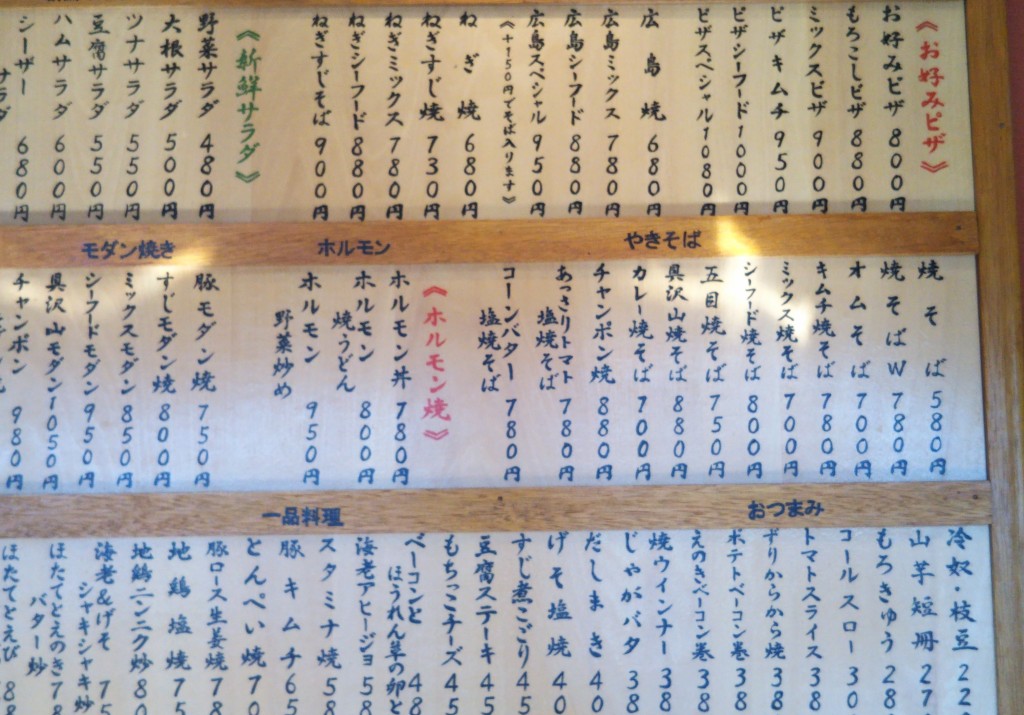 《お好みピザ》
お好みピザ 800円
もろこしピザ 880円
ミックスピザ 900円
ピザキムチ 950円
ピザシーフード 1000円
ピザスペシャル 1080円
広島焼 680円
広島ミックス 780円
広島シーフード 880円
広島スペシャル 950円
《+150円でそば入ります》
ねぎ焼 680円
ねぎすじ焼 730円
ねぎミックス 780円
ねぎシーフード 880円
ねぎすじそば 900円
《新鮮サラダ》
野菜サラダ 480円
大根サラダ 500円
ツナサラダ 550円
豆腐サラダ 550円
ハムサラダ 600円
シーザーサラダ 680円
やきそば
焼そば 580円
焼そばW 780円
オムそば 700円
キムチ焼そば 780円
ミックス焼そば 700円
シーフード焼そば 800円
五目焼そば 750円
具沢山焼そば 880円
カレー焼そば 700円
チャンポン焼 880円
あっさりトマト塩焼そば 780円
コーンバター塩焼そば 780円
ホルモン
《ホルモン焼》
ホルモン丼 780円
ホルモン焼うどん 800円
ホルモン野菜炒め 950円
モダン焼き
豚モダン焼 750円
すじモダン焼 800円
ミックスモダン 850円
シーフードモダン 950円
具沢山モダン 1050円
チャンポン 980円
おつまみ
冷奴・枝豆 22
山芋短冊 27
もろきゅう 28
コールスロー 30
トマトスライス 38
ずりからから焼 38
ポテトベーコン巻 38
えのきベーコン巻 38
焼ウインナー 38
じゃがバタ 38
だしまき 40
げそ塩焼 40
すじ煮こごり 45
豆腐ステーキ 45
もちっこチーズ 45
ベーコンとほうれん草の卵と 48
一品料理
海老アヒージョ 58
スタミナ焼 58
豚キムチ 65
とんぺい焼 70
豚ロース生姜焼 78
地鶏塩焼 75
地鶏ニンニク炒 80
海老&げそシャキシャキ炒 75
ほたてとえのきバター炒 78
ほたてとえび 88